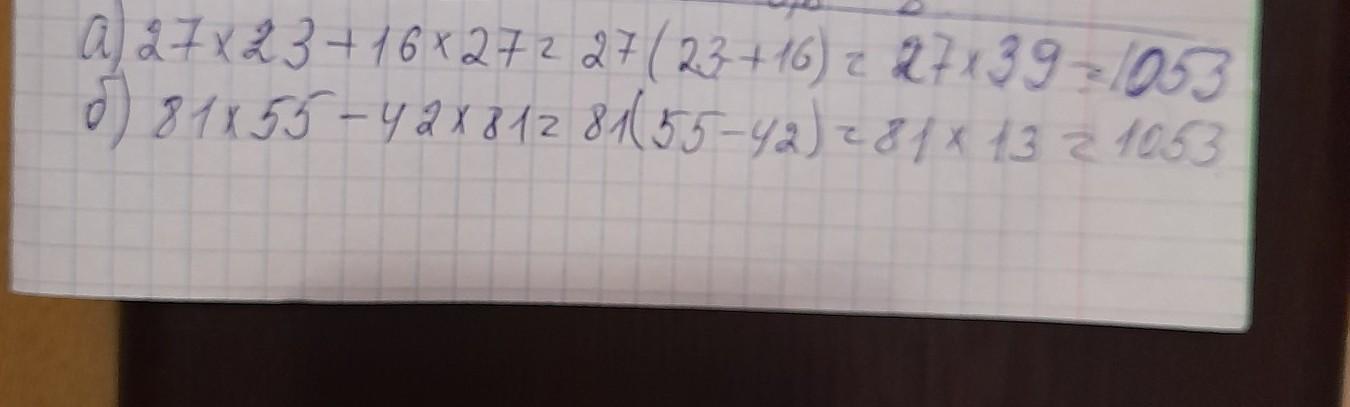 а) 27×23+16×27= 27(23+16)= 27×39=1053
б) 81×55-42×81= 81(55-42)=81×13=1053